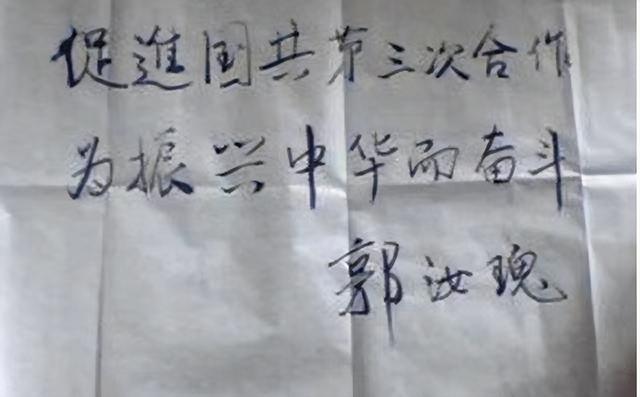 促進国共第三次合作
为振兴中华而奋斗
郭汝瑰